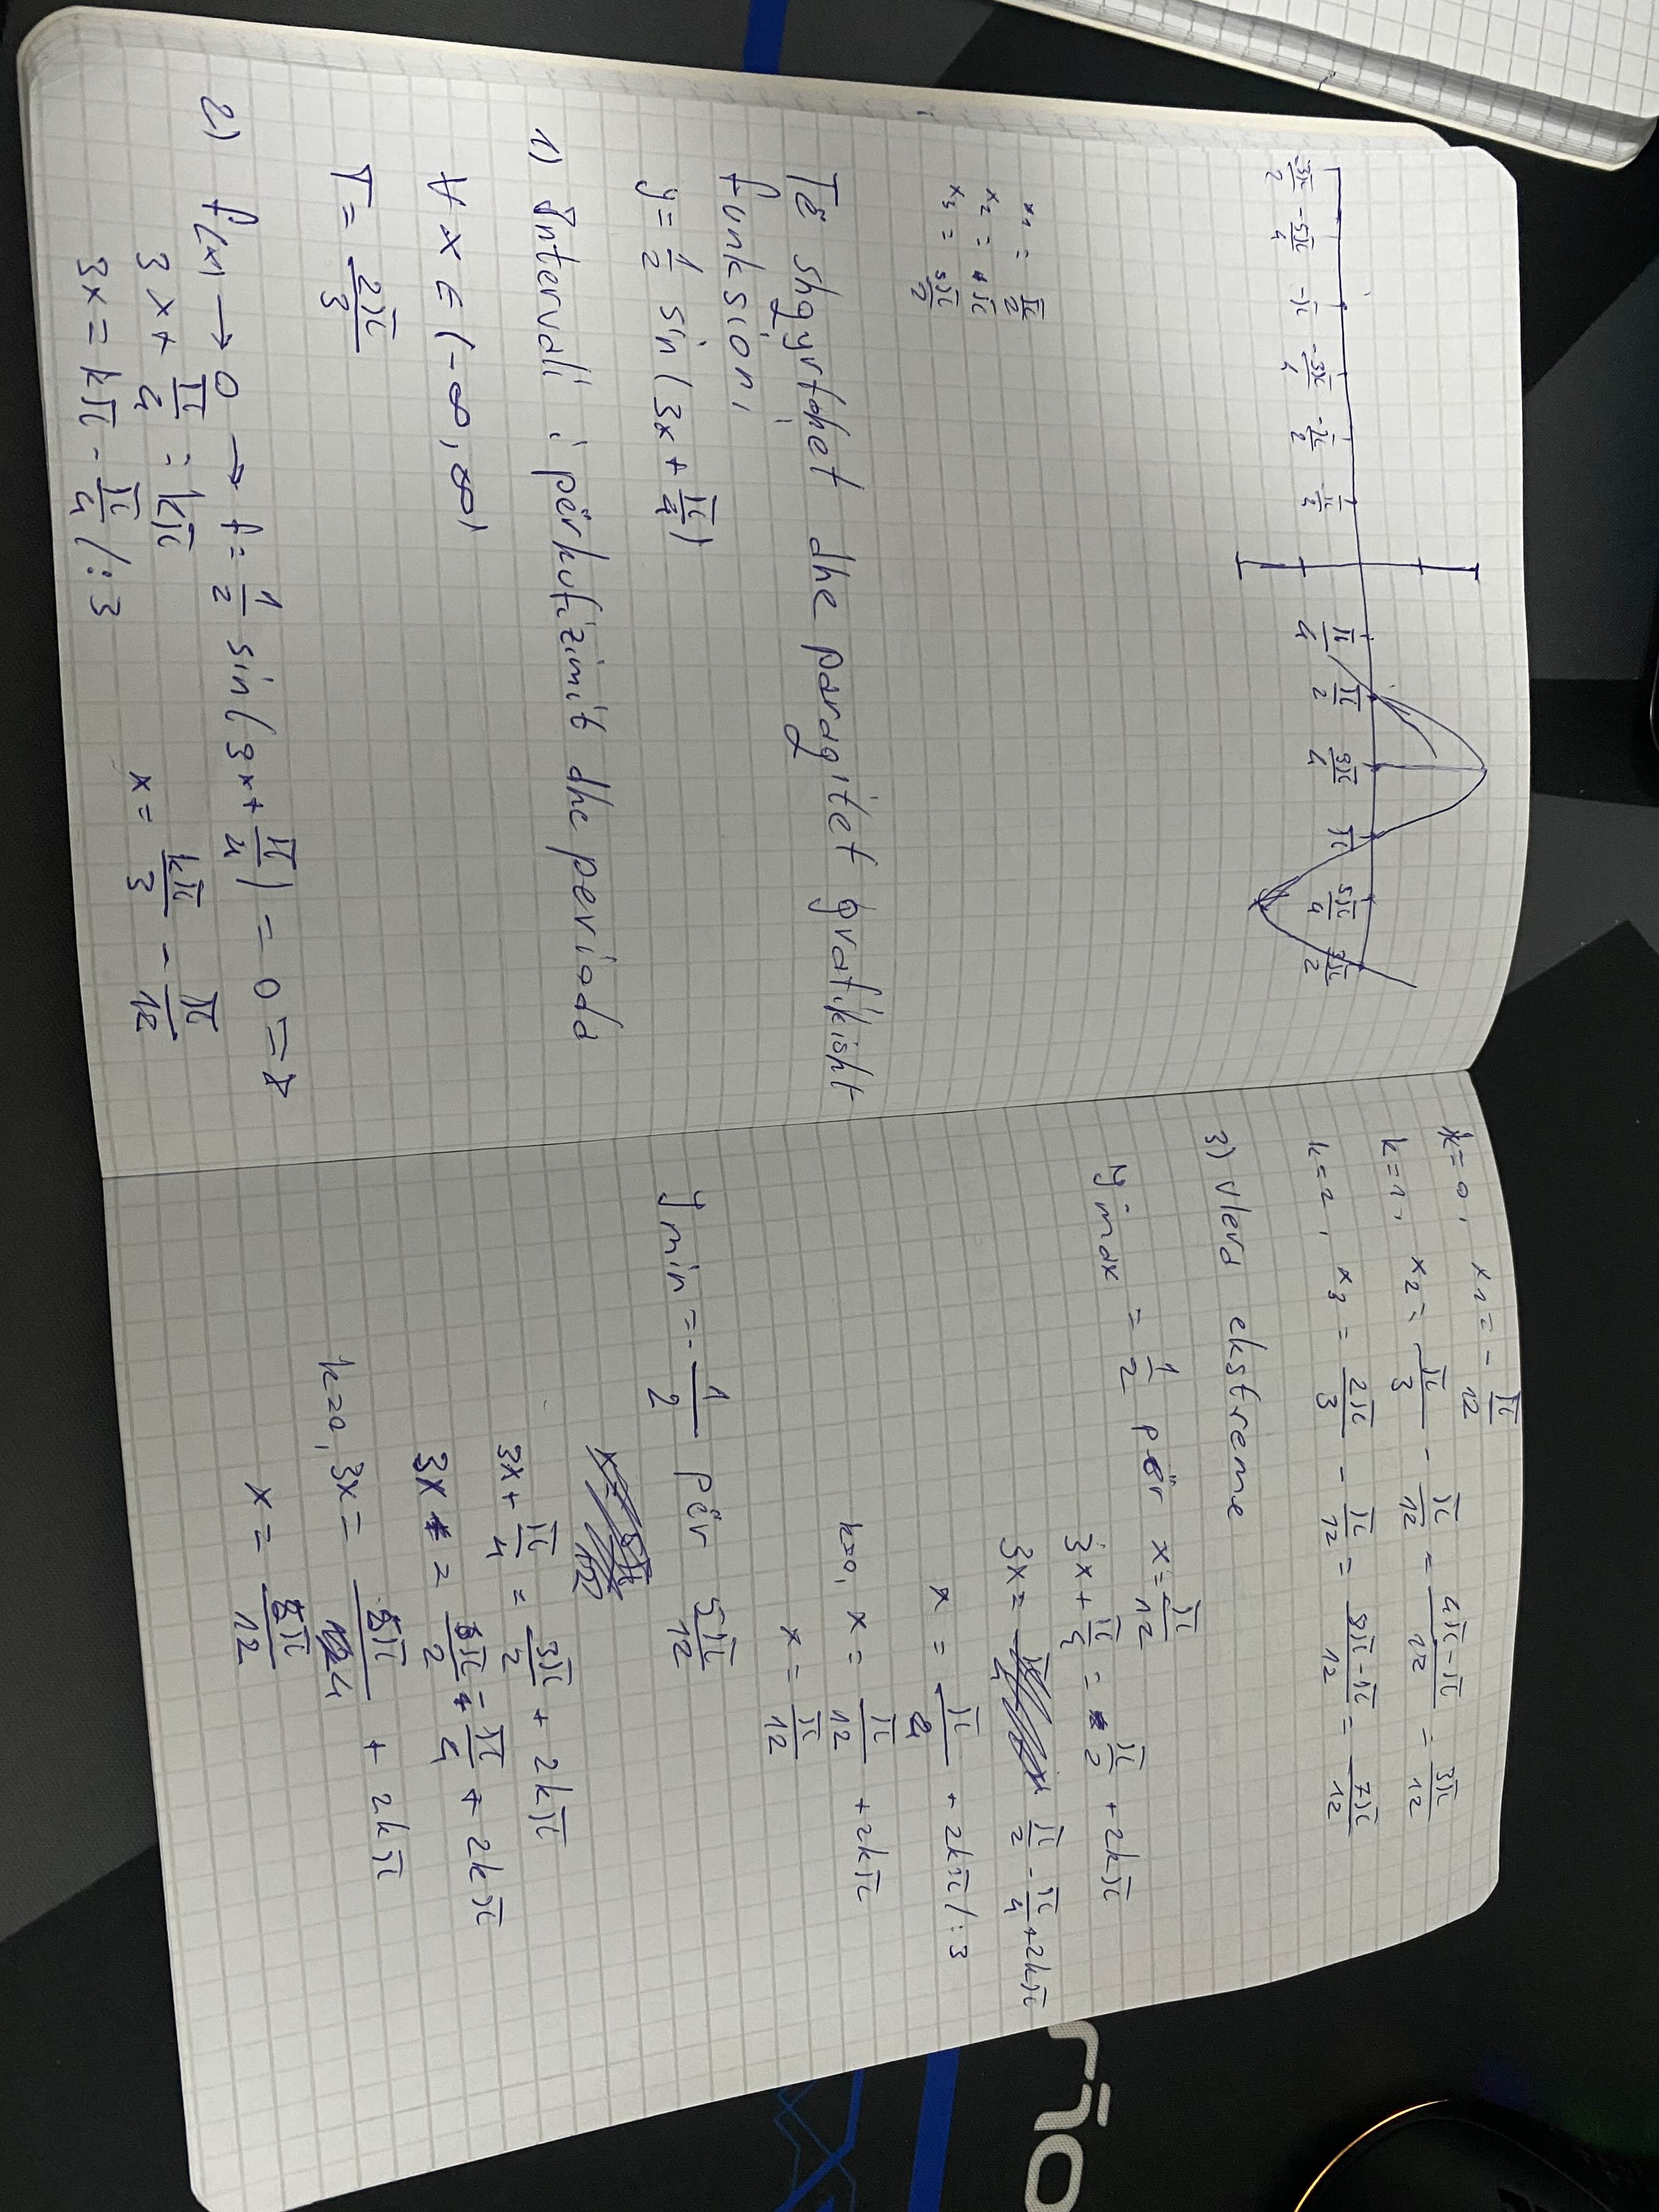 -3π/2 -5π/4 -π -3π/4 -π/2 π/4 π/2 3π/4 π 5π/4 3π/2
x1 = π/2
x2 = π
x3 = 3π/2
Të shqyrtohet dhe paragitet grafikisht
funksioni
y = 1/2 sin(3x + π/4)
1) Intervali i përkufizimit dhe perioda
∀ x ∈ (-∞, ∞)
T = 2π/3
2) f(x) → 0 → f = 1/2 sin(3x + π/4) = 0 =>
3x + π/4 = kπ
3x = kπ - π/4 /:3
x = kπ/3 - π/12
k=0, x1 = -π/12
k=1, x2 = π/3 - π/12 = 4π-π/12 = 3π/12
k=2, x3 = 2π/3 - π/12 = 8π-π/12 = 7π/12
3) Vlera ekstreme
y max = 1/2 për x = π/12
3x + π/4 = π/2 + 2kπ
3x = π/2 - π/4 + 2kπ
x = π/4 + 2kπ /:3
k=0, x = π/12 + 2kπ
x = π/12
y min = -1/2 për 5π/12
3x + π/4 = 3π/2 + 2kπ
3x = 3π/2 - π/4 + 2kπ
k=0, 3x = 5π/4 + 2kπ
x = 5π/12
rino